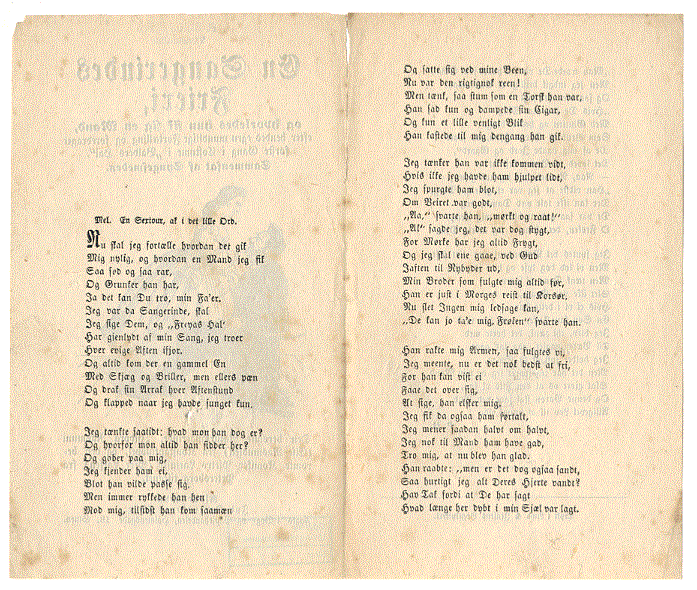 Mel. En Sertour, ak i det lille Ord.
Nu skal jeg fortælle hvordan det gik
Mig nylig, og hvordan en Mand jeg fik
Saa sød og saa rar,
Og Grunker han har,
Ja det kan Du tro, min Fa'er.
Jeg var da Sangerinde, skal
Jeg sige Dem, og „Freyas Hal“
Har gjenlydt af min Sang, jeg troer
Hver evige Aften ifjor.
Og altid kom der en gammel En
Med Skjæg og Briller, men ellers pæn
Og drak sin Arrak hver Aftenstund
Og klapped naar jeg havde sunget kun.
Jeg tænkte saatidt: hvad mon han dog er?
Og hvorfor mon altid han sidder her?
Og gober paa mig,
Jeg kjender ham ei,
Blot han vilde passe sig.
Men immer rykkede han hen
Mod mig, tilsidst han kom saamæn
Og satte sig ved mine Been,
Nu var den rigtignok reen!
Men tænk, saa stum som en Torsk han var,
Han sad kun og dampede sin Cigar,
Og kun et lille venligt Blik
Han kastede til mig dengang han gik.
Jeg tænker han var ikke kommen vidt,
Hvis ikke jeg havde ham hjulpet lidt,
Jeg spurgte ham blot,
Om Veiret var godt,
„Aa,“ svarte han, „mørkt og raat!“
„Ak“ sagde jeg, det var dog stygt,
For Mørke har jeg altid Frygt,
Og jeg skal ene gaae, ved Gud
Iaften til Nyboder ud,
Min Broder som fulgte mig altid før,
Han er just i Morges reist til Korsør,
Nu slet Ingen mig ledsage kan,
„De kan jo ta'e mig, Frølen“ svarte han.
Han rakte mig Armen, saa fulgtes vi,
Jeg meente, nu er det nok bedst at fri,
For han kan vist ei
Faae det over sig,
At sige, han elsker mig,
Jeg fik da ogsaa ham fortalt,
Jeg mener saadan halvt om halvt,
Jeg nok til Mand ham have gad,
Tro mig, at nu blev han glad.
Han raabte: „men er det dog ogsaa sandt,
Saa hurtigt jeg alt Deres Hjerte vandt?
Hav Tak fordi at De har sagt
Hvad længe her dybt i min Sjæl var lagt.